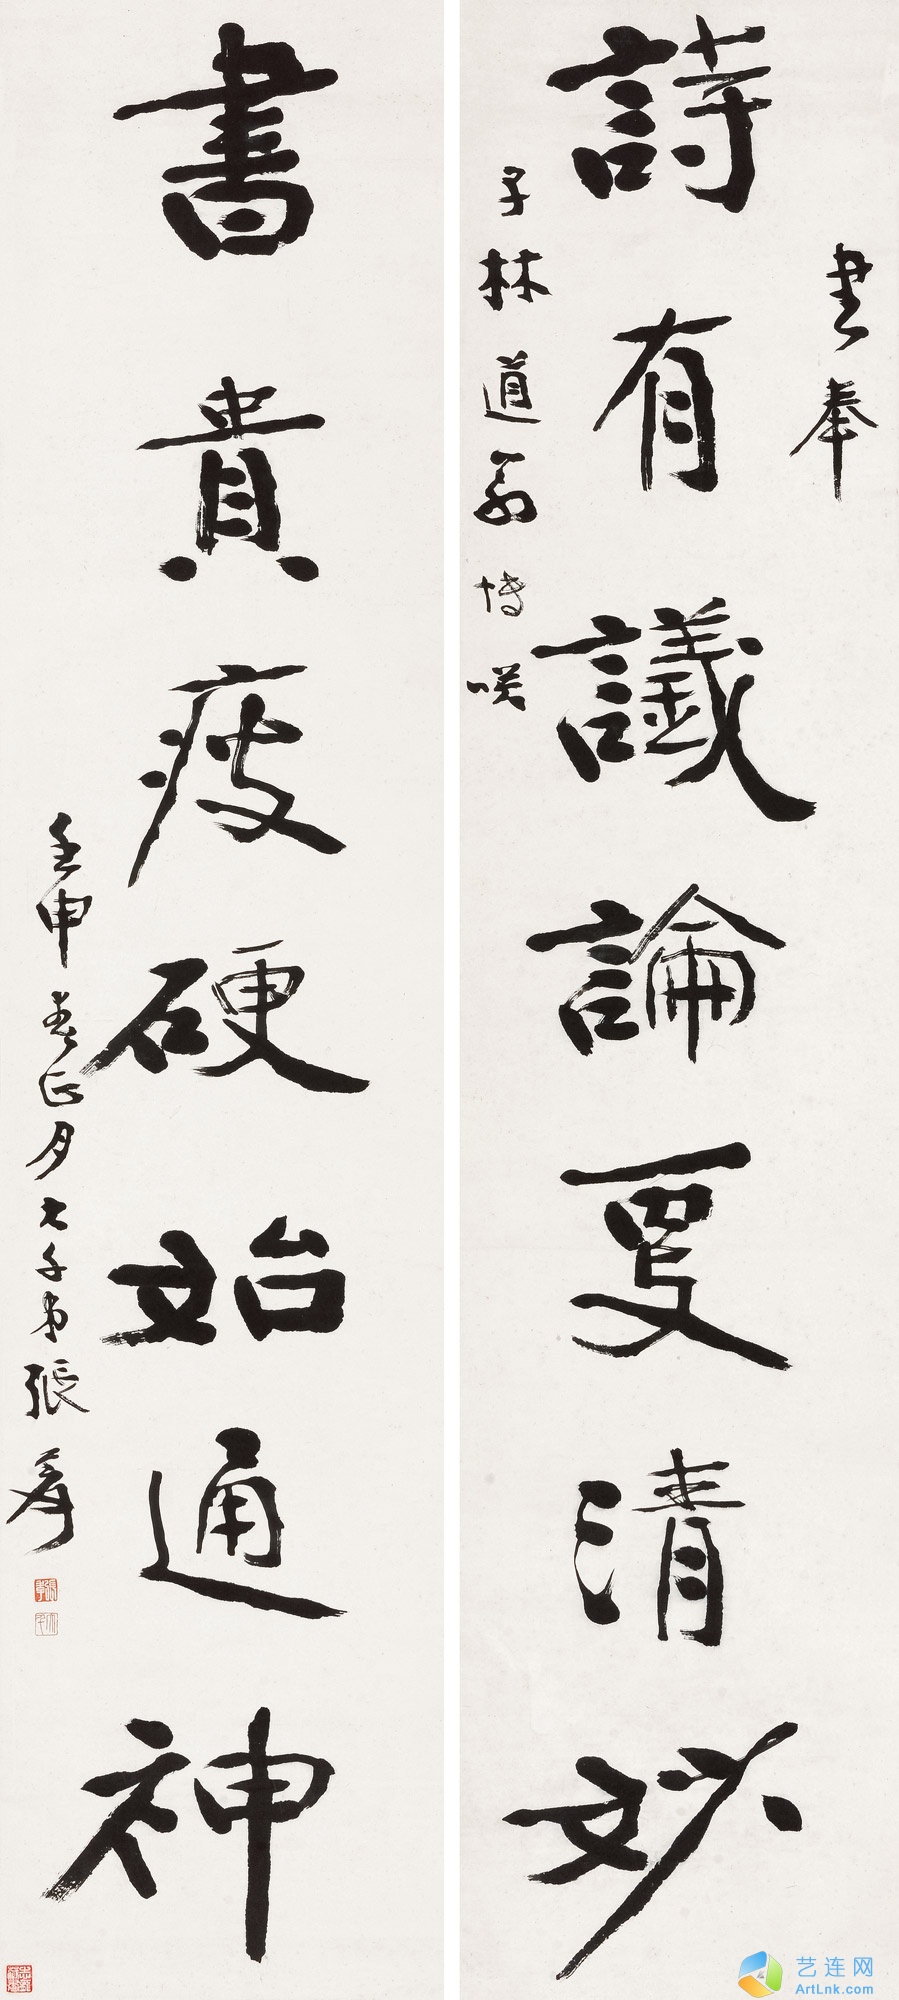 書奉
詩有議論更清妙
子林道翁博咲
書貴瘦硬始通神
壬申春正月大千弟張爰
張爰
大千
艺连网
ArtLnk.com